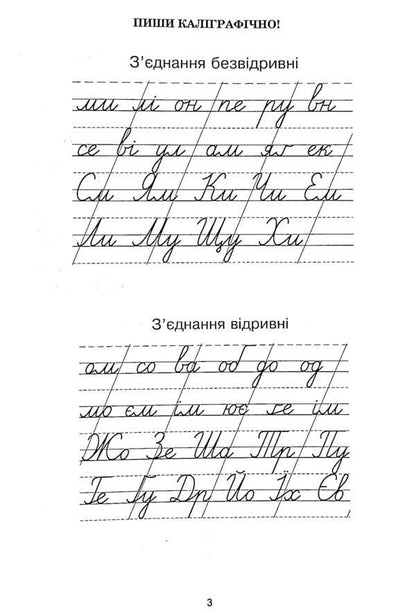 ПИШИ КАЛІГРАФІЧНО!
З’єднання безвідривні
ми лі он пе ру вн
се ві ул ам яг ек
См Ям Ки Чи Ем
Ли Му Щу Хи
З’єднання відривні
ом со ва об до од
мо єм їм ює ґе ім
Жо Зе Ша Тр Пу
Ге Ґу Др Йо Їх Єв
3